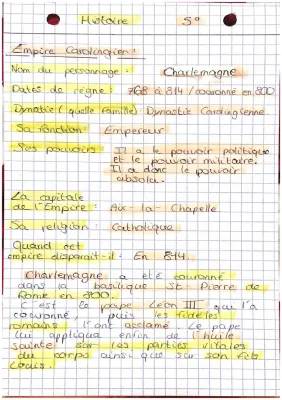 Histoire 5°
Empire Carolingien :
Nom du personnage : Charlemagne
Dates de règne : 768 à 814 / couronné en 800
Dynastie (quelle famille) Dynastie Carolingienne
Sa fonction : Empereur
Ses pouvoirs : Il a le pouvoir politique
et le pouvoir militaire.
Il a donc le pouvoir
absolu.
La capitale
de l'Empire : Aix-la-Chapelle
Sa religion : Catholique
Quand cet
empire disparait-il : En 814.
Charlemagne a été couronné
dans la basilique St Pierre de
Rome en 800.
C'est le pape Léon III qui l'a
couronné, puis les fidèles
romains l'ont acclamé. Le pape
lui appliqua enfin de l'huile
sainte sur les parties vitales
du corps ainsi que sur son fils
Louis.